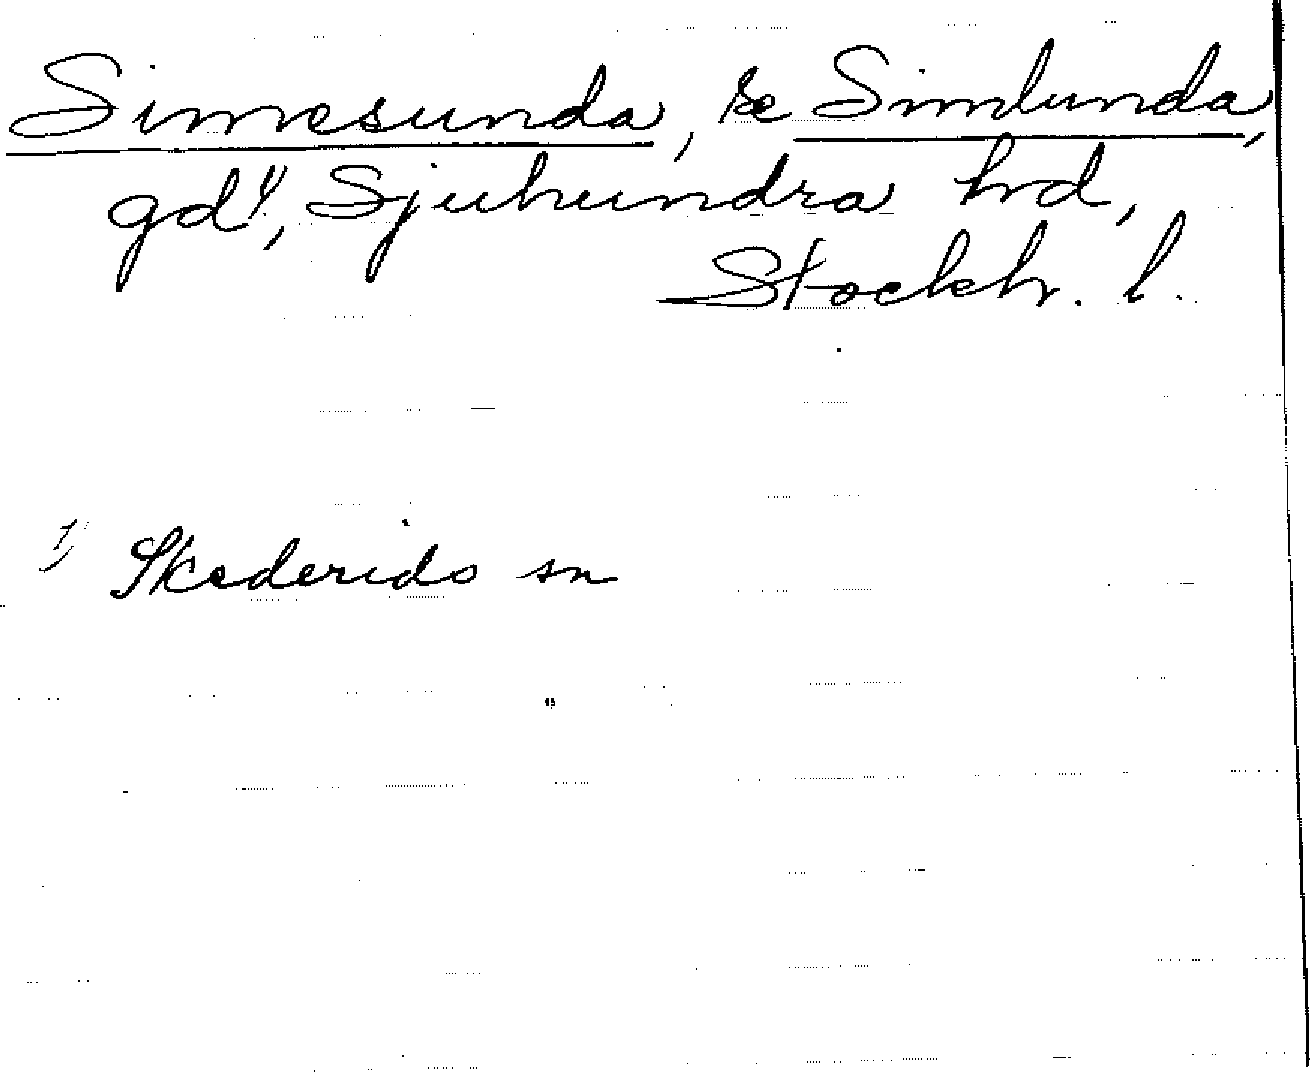 Simesunda, se Simlunda,
gd¹⁾, Sjuhundra hd,
Stockh. l.
¹⁾ Skederids sn